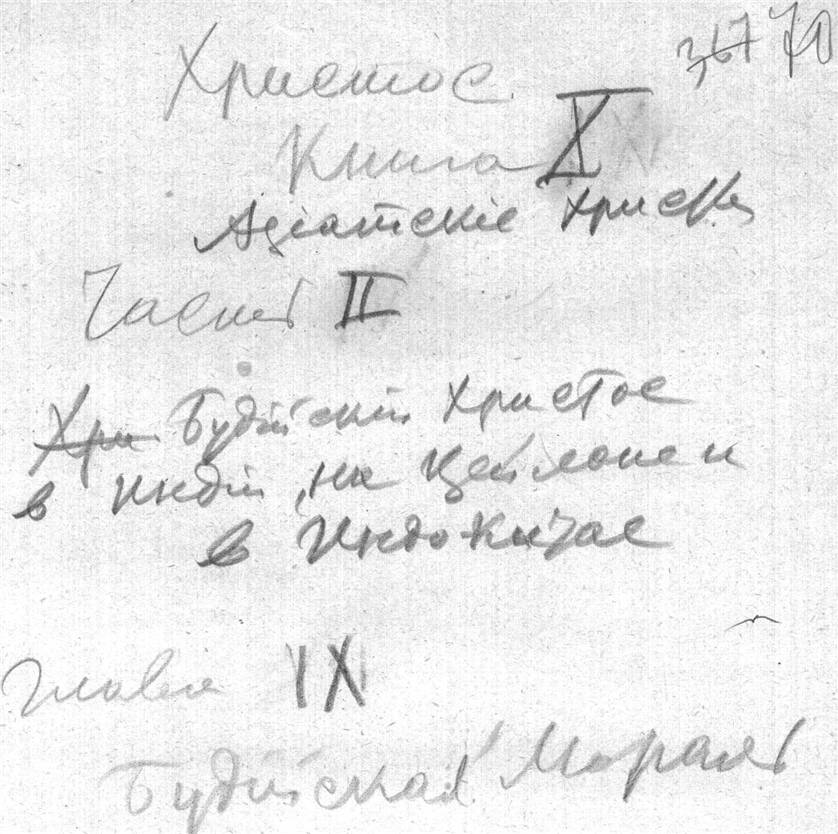 367 70
Христос
Книга X
Азіатскіе Христы
Часть II
Хри Будійскій Христос
в Индіи, на Цейлоне и
в Индо-Китае
глава IX
Будійская Мораль